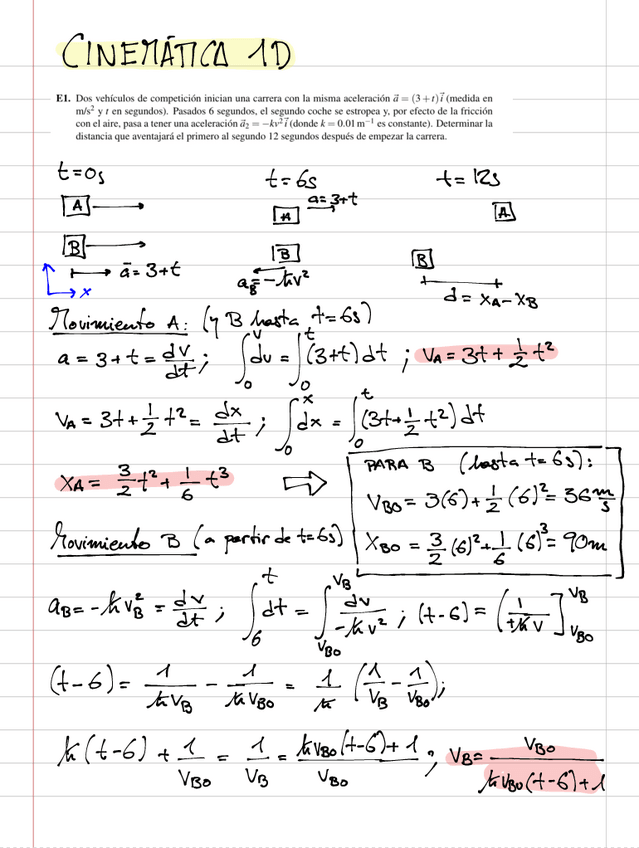 CINEMÁTICA 1D
E1. Dos vehículos de competición inician una carrera con la misma aceleración a⃗ = (3 + t) i⃗ (medida en
m/s² y t en segundos). Pasados 6 segundos, el segundo coche se estropea y, por efecto de la fricción
con el aire, pasa a tener una aceleración a⃗₂ = −kv² i⃗ (donde k = 0.01 m⁻¹ es constante). Determinar la
distancia que aventajará el primero al segundo 12 segundos después de empezar la carrera.
t=0s t=6s t=12s
a=3+t
A A A
B B B
a⃗=3+t a_B=-kv² d = x_A-x_B
x
Movimiento A: (y B hasta t=6s)
a = 3+t = dv/dt ; ∫₀^v dv = ∫₀^t (3+t) dt ; V_A = 3t + 1/2 t²
V_A = 3t + 1/2 t² = dx/dt ; ∫₀^x dx = ∫₀^t (3t+1/2 t²) dt
x_A = 3/2 t² + 1/6 t³ ⇒
PARA B (hasta t=6s):
V_B0 = 3(6) + 1/2 (6)² = 36 m/s
x_B0 = 3/2 (6)² + 1/6 (6)³ = 90m
Movimiento B (a partir de t=6s)
a_B = -k v_B² = dv/dt ; ∫₆^t dt = ∫_{V_B0}^{V_B} dv/-kv² ; (t-6) = (1/+kv]_{V_B0}^{V_B}
(t-6) = 1/kV_B - 1/kV_B0 = 1/k (1/V_B - 1/V_B0);
k(t-6) + 1/V_B0 = 1/V_B = kV_B0(t-6)+1/V_B0 ; V_B = V_B0/kV_B0(t-6)+1